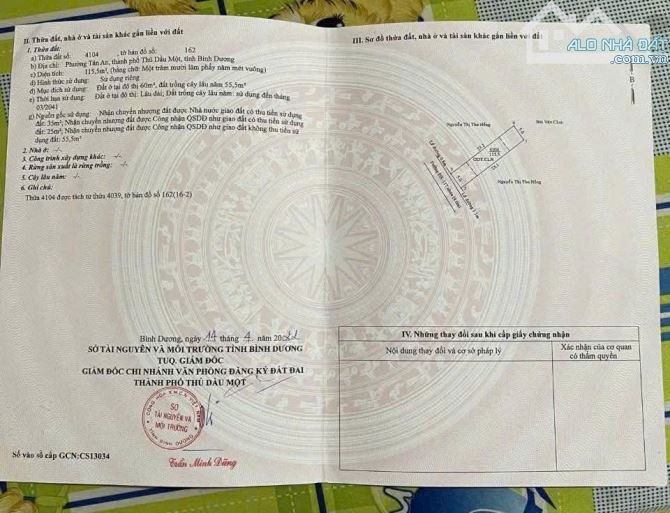 II. Thửa đất, nhà ở và tài sản khác gắn liền với đất
1. Thửa đất:
a) Thửa đất số: 4104 , tờ bản đồ số: 162
b) Địa chỉ: Phường Tân An, thành phố Thủ Dầu Một, tỉnh Bình Dương
c) Diện tích: 115,5m², (bằng chữ: Một trăm mười lăm phẩy năm mét vuông)
d) Hình thức sử dụng: Sử dụng riêng
đ) Mục đích sử dụng: Đất ở tại đô thị 60m², đất trồng cây lâu năm 55,5m²
e) Thời hạn sử dụng: Đất ở tại đô thị: Lâu dài; Đất trồng cây lâu năm: sử dụng đến tháng
03/2041
g) Nguồn gốc sử dụng: Nhận chuyển nhượng đất được Nhà nước giao đất có thu tiền sử dụng
đất: 35m²; Nhận chuyển nhượng đất được Công nhận QSDĐ như giao đất có thu tiền sử dụng
đất: 25m²; Nhận chuyển nhượng đất được Công nhận QSDĐ như giao đất không thu tiền sử
dụng: 55,5m²
2. Nhà ở: -/-
3. Công trình xây dựng khác: -/-
4. Rừng sản xuất là rừng trồng: -/-
5. Cây lâu năm: -/-
6. Ghi chú:
Thửa 4104 được tách từ thửa 4039, tờ bản đồ số 162(16-2)
Bình Dương, ngày 14 tháng 4 năm
SỞ TÀI NGUYÊN VÀ MÔI TRƯỜNG TỈNH BÌNH DƯƠNG
TUQ. GIÁM ĐỐC
GIÁM ĐỐC CHI NHÁNH VĂN PHÒNG ĐĂNG KÝ ĐẤT ĐAI
THÀNH PHỐ THỦ DẦU MỘT
SỞ
TÀI NGUYÊN VÀ
MÔI TRƯỜNG
Trần Minh Đăng
Số vào sổ cấp GCN:CS13034
III. Sơ đồ thửa đất, nhà ở và tài sản khác gắn liền với đất
ALO NHÀ ĐẤT
B
Nguyễn Thị Thu Hồng
4104
115.5
ODT+CLN
Nguyễn Thị Thu Hồng
IV. Những thay đổi sau khi cấp giấy chứng nhận
Nội dung thay đổi và cơ sở pháp lý
Xác nhận của cơ quan
có thẩm quyền